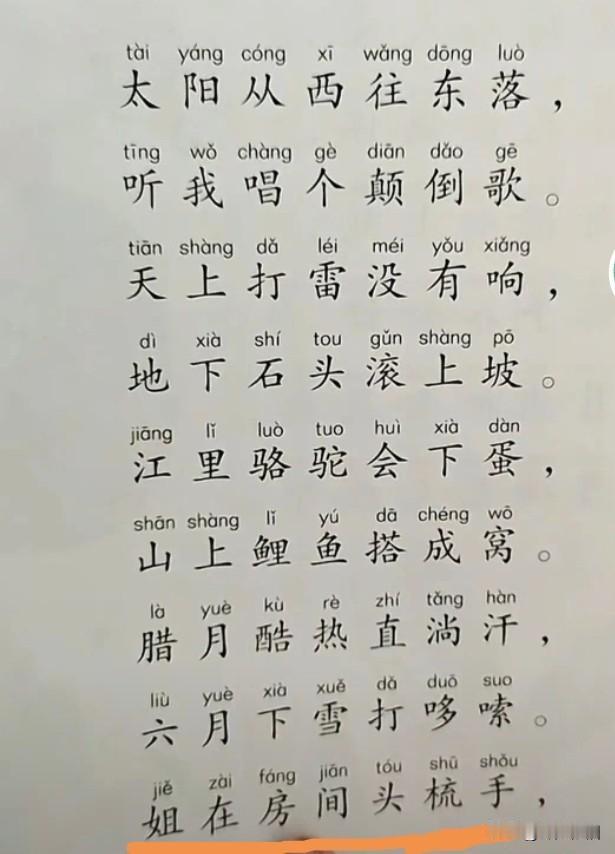 tài yáng cóng xī wǎng dōng luò
太阳从西往东落，
tīng wǒ chàng gè diān dǎo gē
听我唱个颠倒歌。
tiān shàng dǎ léi méi yǒu xiǎng
天上打雷没有响，
dì xià shí tou gǔn shàng pō
地下石头滚上坡。
jiāng lǐ luò tuo huì xià dàn
江里骆驼会下蛋，
shān shàng lǐ yú dā chéng wō
山上鲤鱼搭成窝。
là yuè kù rè zhí tǎng hàn
腊月酷热直淌汗，
liù yuè xià xuě dǎ duō suo
六月下雪打哆嗦。
jiě zài fáng jiān tóu shū shǒu
姐在房间头梳手，